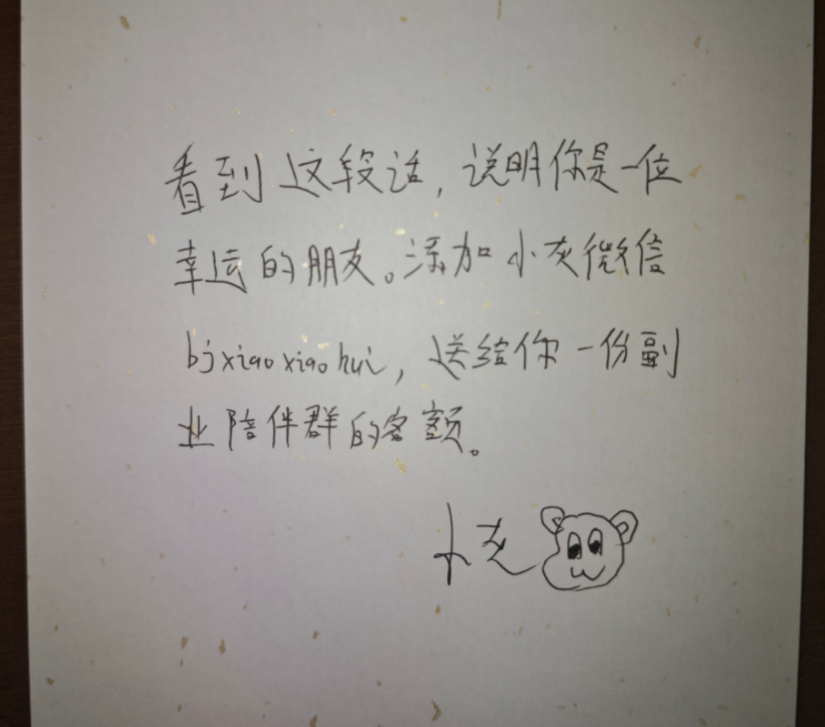 看到这段话，说明你是一位
幸运的朋友。添加小灰微信
bjxiaoxiaohui，送给你一份副
业陪伴群的名额。
小灰